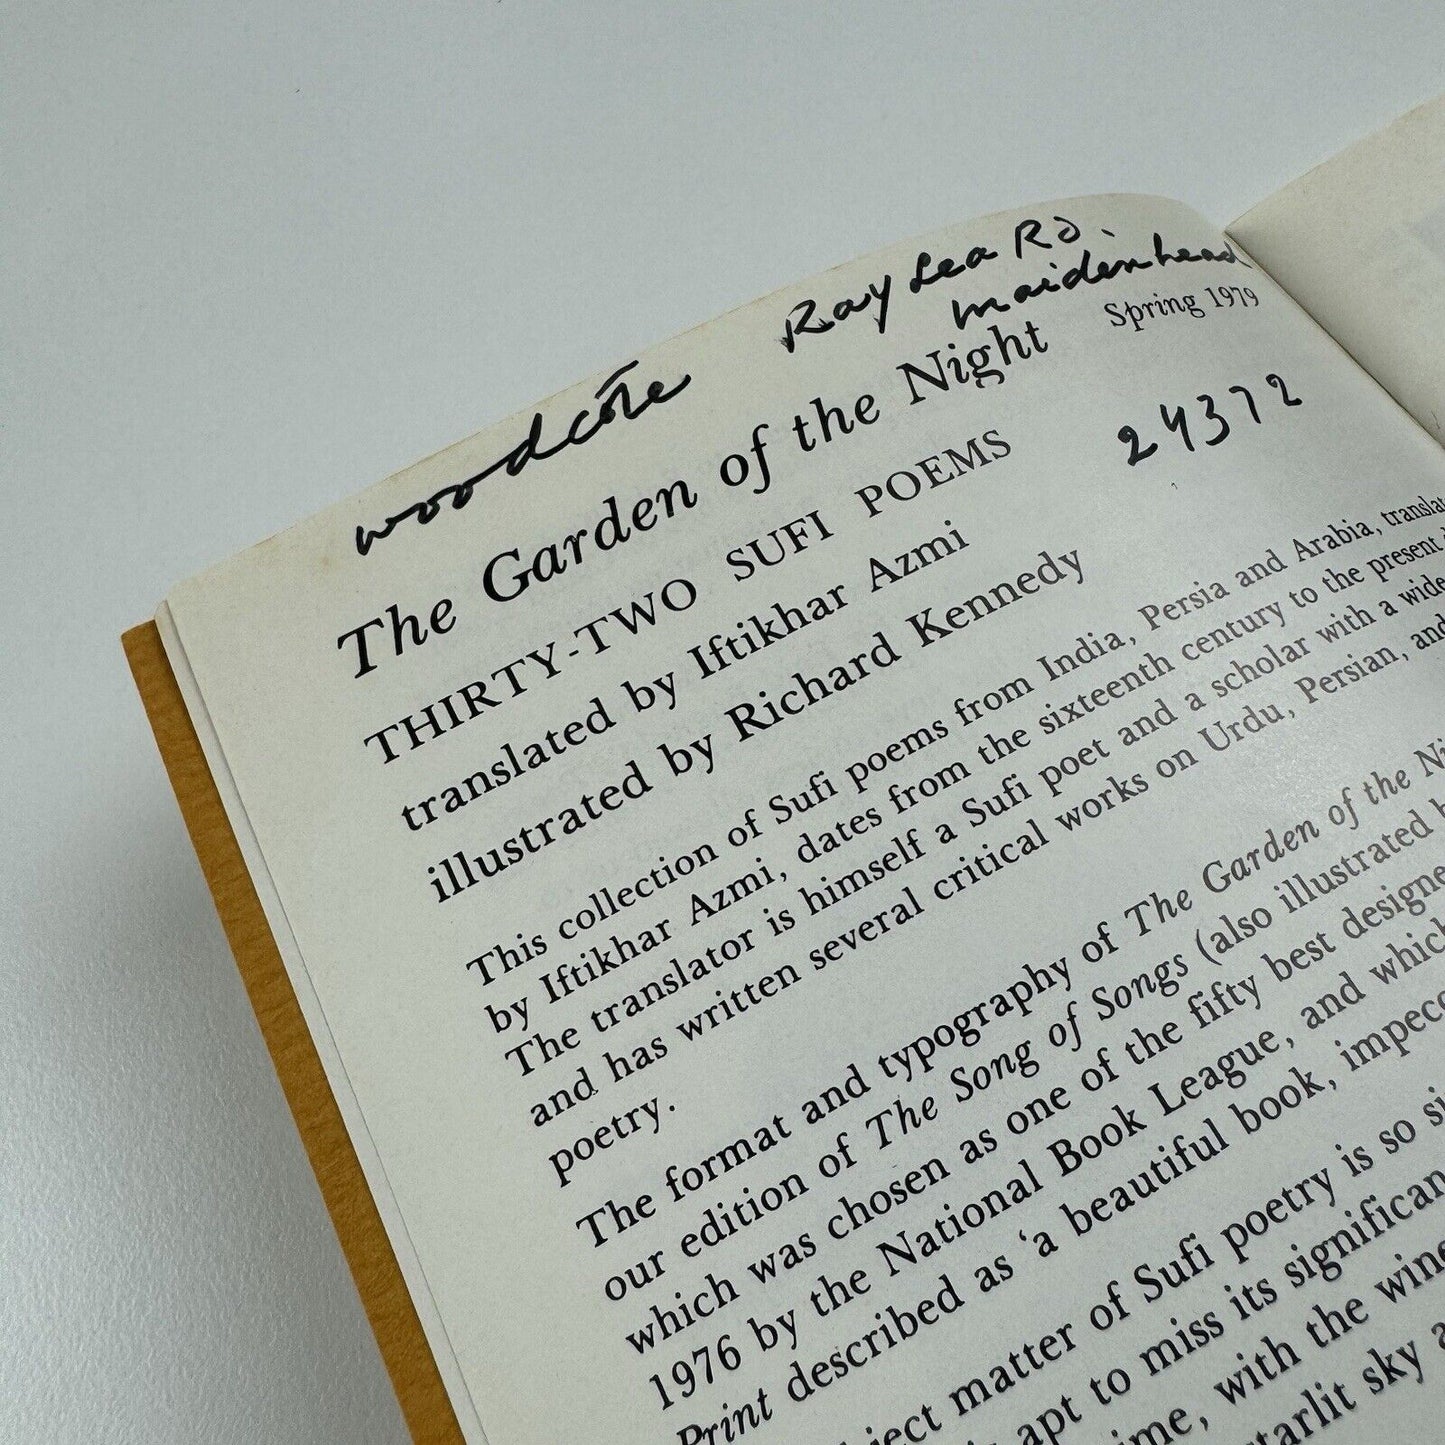 Ray Lea Rd.
maidenhead
woodcote
Spring 1979
24372
The Garden of the Night
THIRTY-TWO SUFI POEMS
translated by Iftikhar Azmi
illustrated by Richard Kennedy
This collection of Sufi poems from India, Persia and Arabia,
by Iftikhar Azmi, dates from the sixteenth century to the present
The translator is himself a Sufi poet and a scholar with a wide
and has written several critical works on Urdu, Persian, and
poetry.
The format and typography of The Garden of the
our edition of The Song of Songs (also illustrated
which was chosen as one of the fifty best
1976 by the National Book League, and which
Print described as ‘a beautiful book,
matter of Sufi poetry is so
apt to miss its
with the
sky